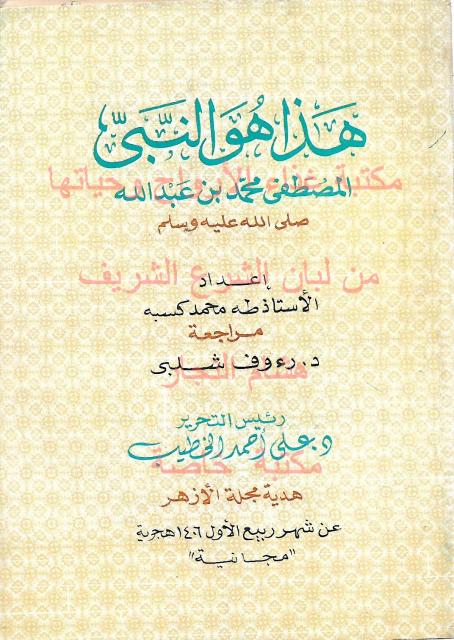 هذا هو النبي
المصطفى محمد بن عبد الله
صلى الله عليه وسلم
إعداد
الأستاذ طه محمد كسبه
مراجعة
د. رءوف شلبى
رئيس التحرير
د. على أحمد الخطيب
هدية مجلة الأزهر
عن شهر ربيع الأول ١٤٠٦ هجرية
"مجانية"
مكتبة غذاء الأرواح وحياتها
من لبان الشرع الشريف
هشام النجار
مكتبة خاصة